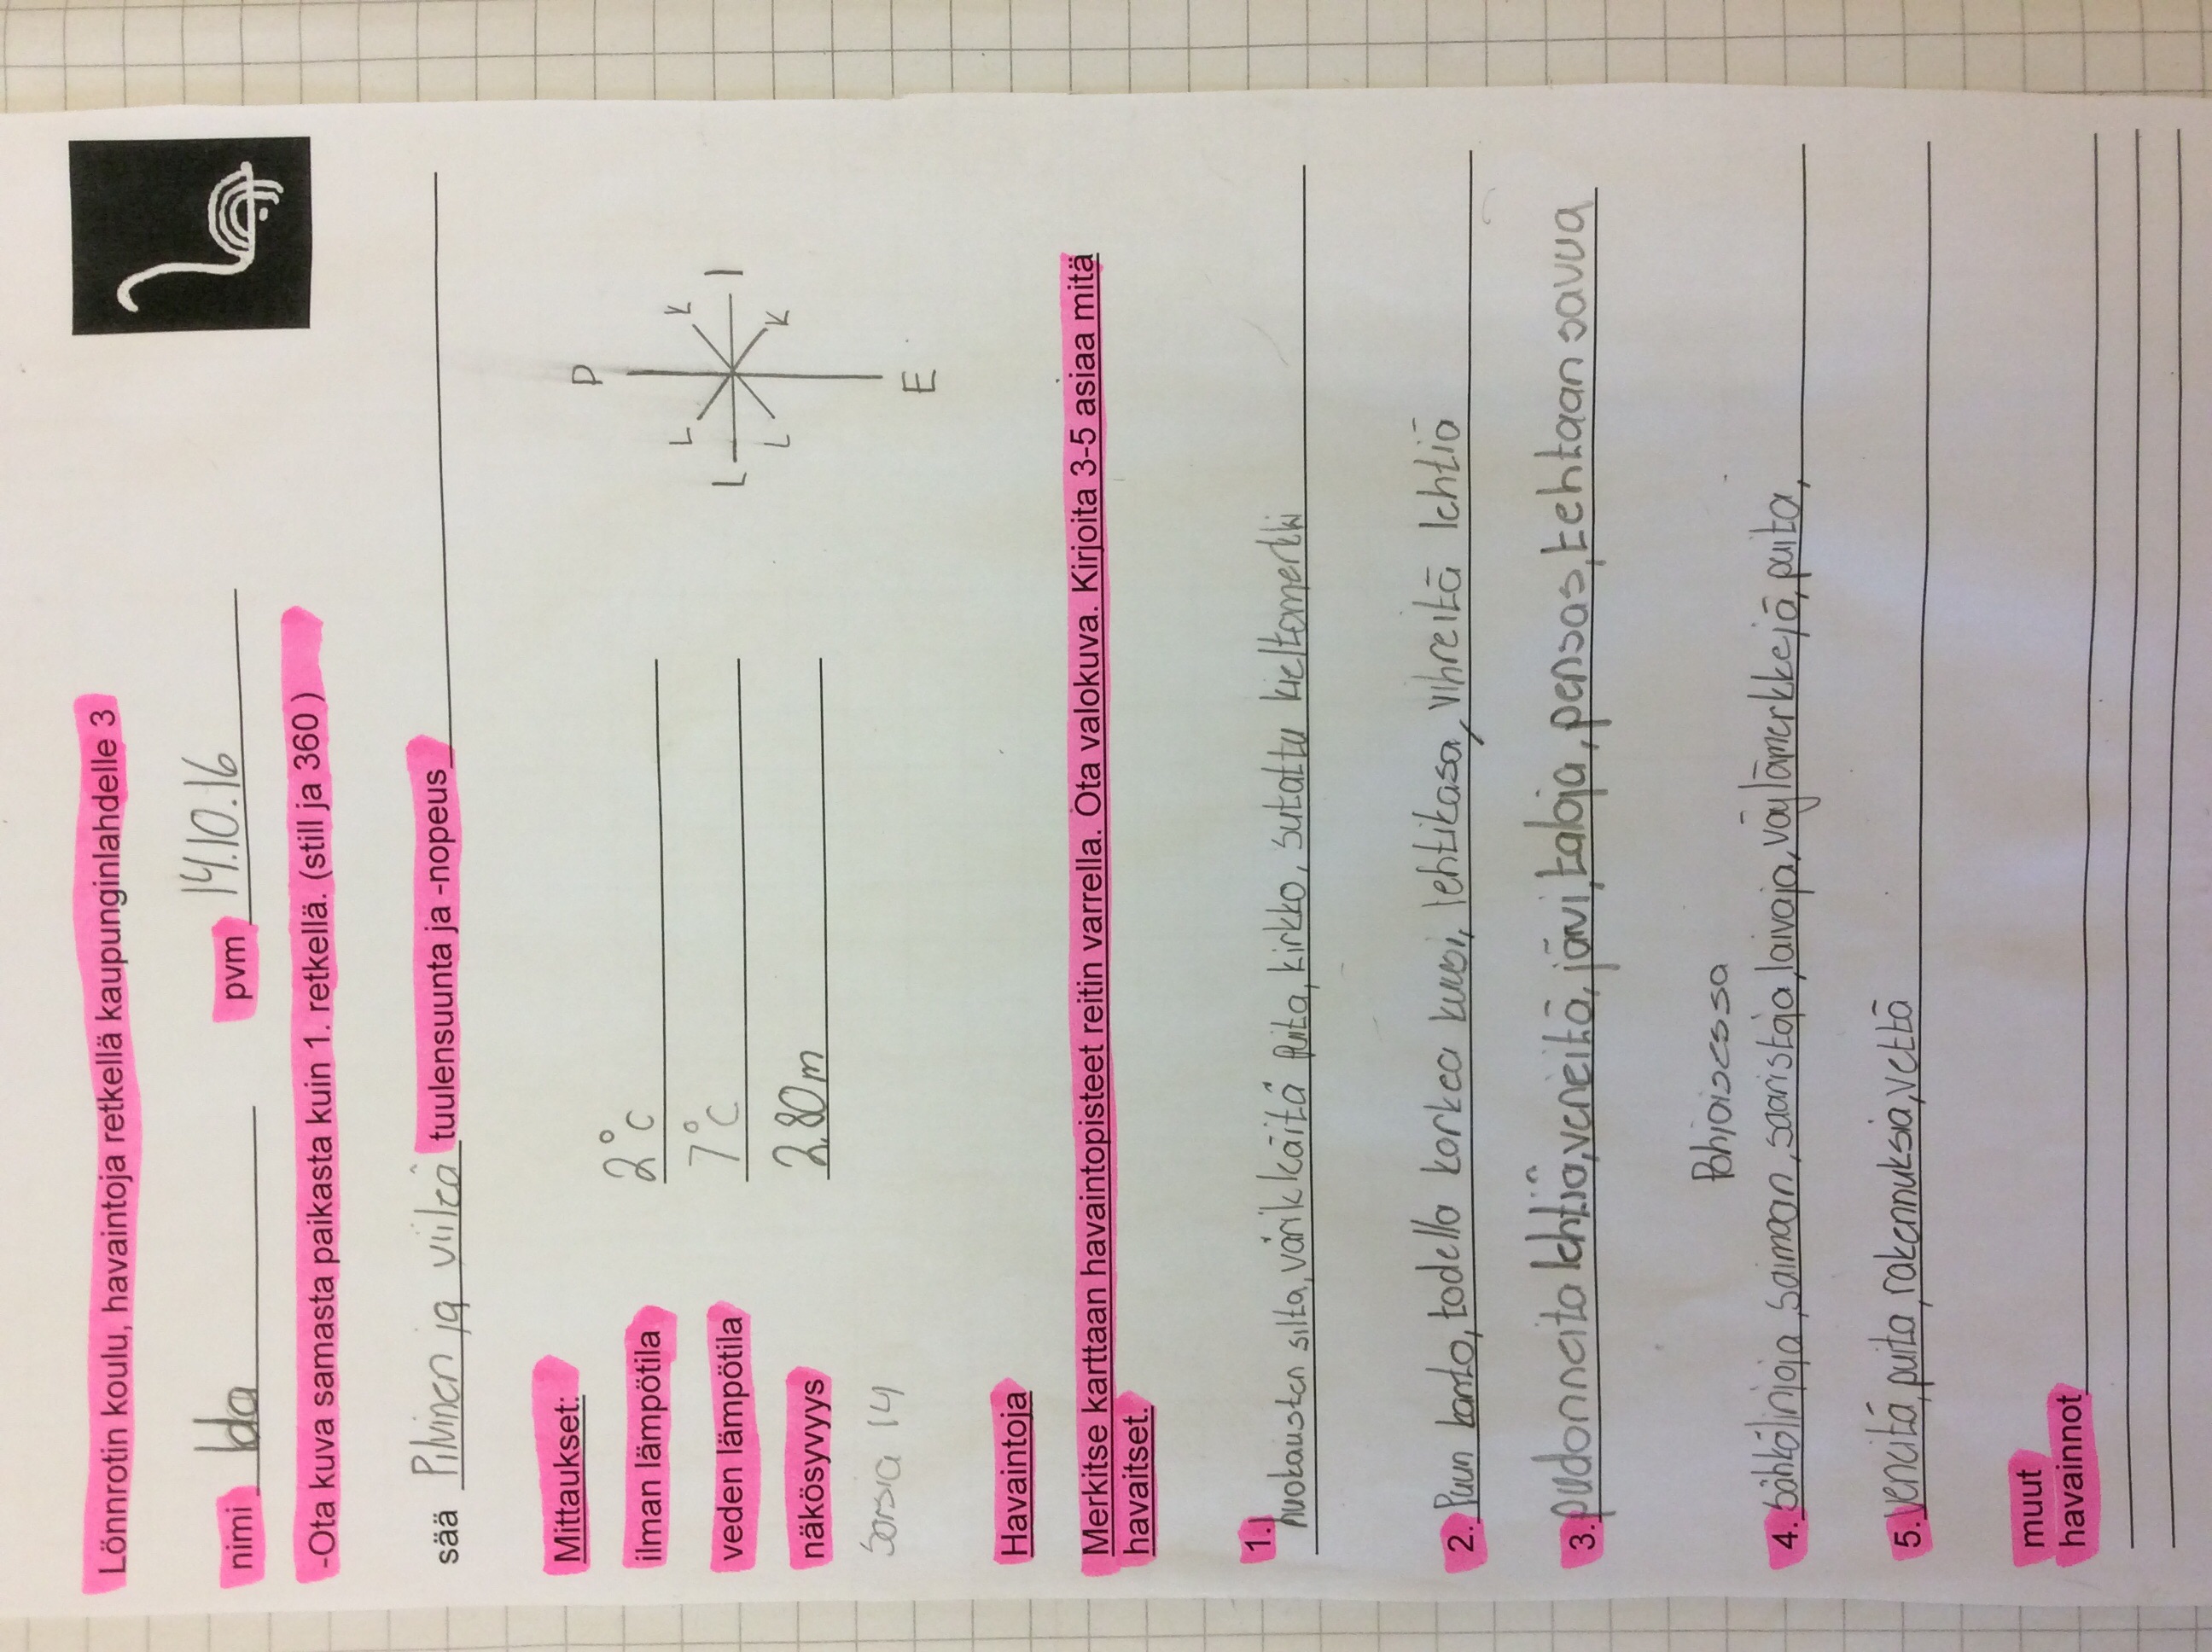 Lönnrotin koulu, havaintoja retkellä kaupunginlahdelle 3
nimi Ida pvm 14.10.16
-Ota kuva samasta paikasta kuin 1. retkellä. (still ja 360 )
sää Pilvinen ja viileä tuulensuunta ja -nopeus
Mittaukset:
ilman lämpötila 2°C
veden lämpötila 7°C
näkösyvyys 2,80m
Sorsia 14
P
L K
L I
L K
E
Havaintoja
Merkitse karttaan havaintopisteet reitin varrella. Ota valokuva. Kirjoita 3-5 asiaa mitä
havaitset.
1. silta, värikkäitä puita, kirkko, sutattu kieltomerkki
2. Puun kanto, todella korkea kuusi, lehtikasa, vihreitä lehtiä
3. pudonneita lehtiä, veneitä, järvi, taloja, pensas, tehtaan savua
Pohjoisessa
4. sähkölinjoja, saimaan, saaristoja, laivoja, väylämerkkejä, puita,
5. veneitä, puita, rakennuksia, vettä
muut
havainnot